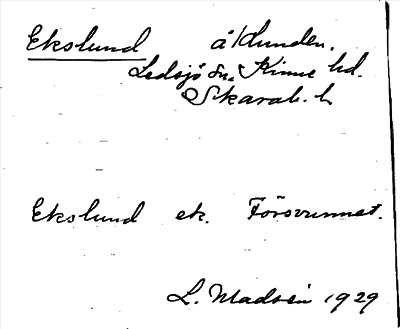 Ekslund å Lunden.
Ledsjö sn. Kinne hd.
Skarab. l.
Ekslund ek. Försvunnet.
L. Madsén 1929